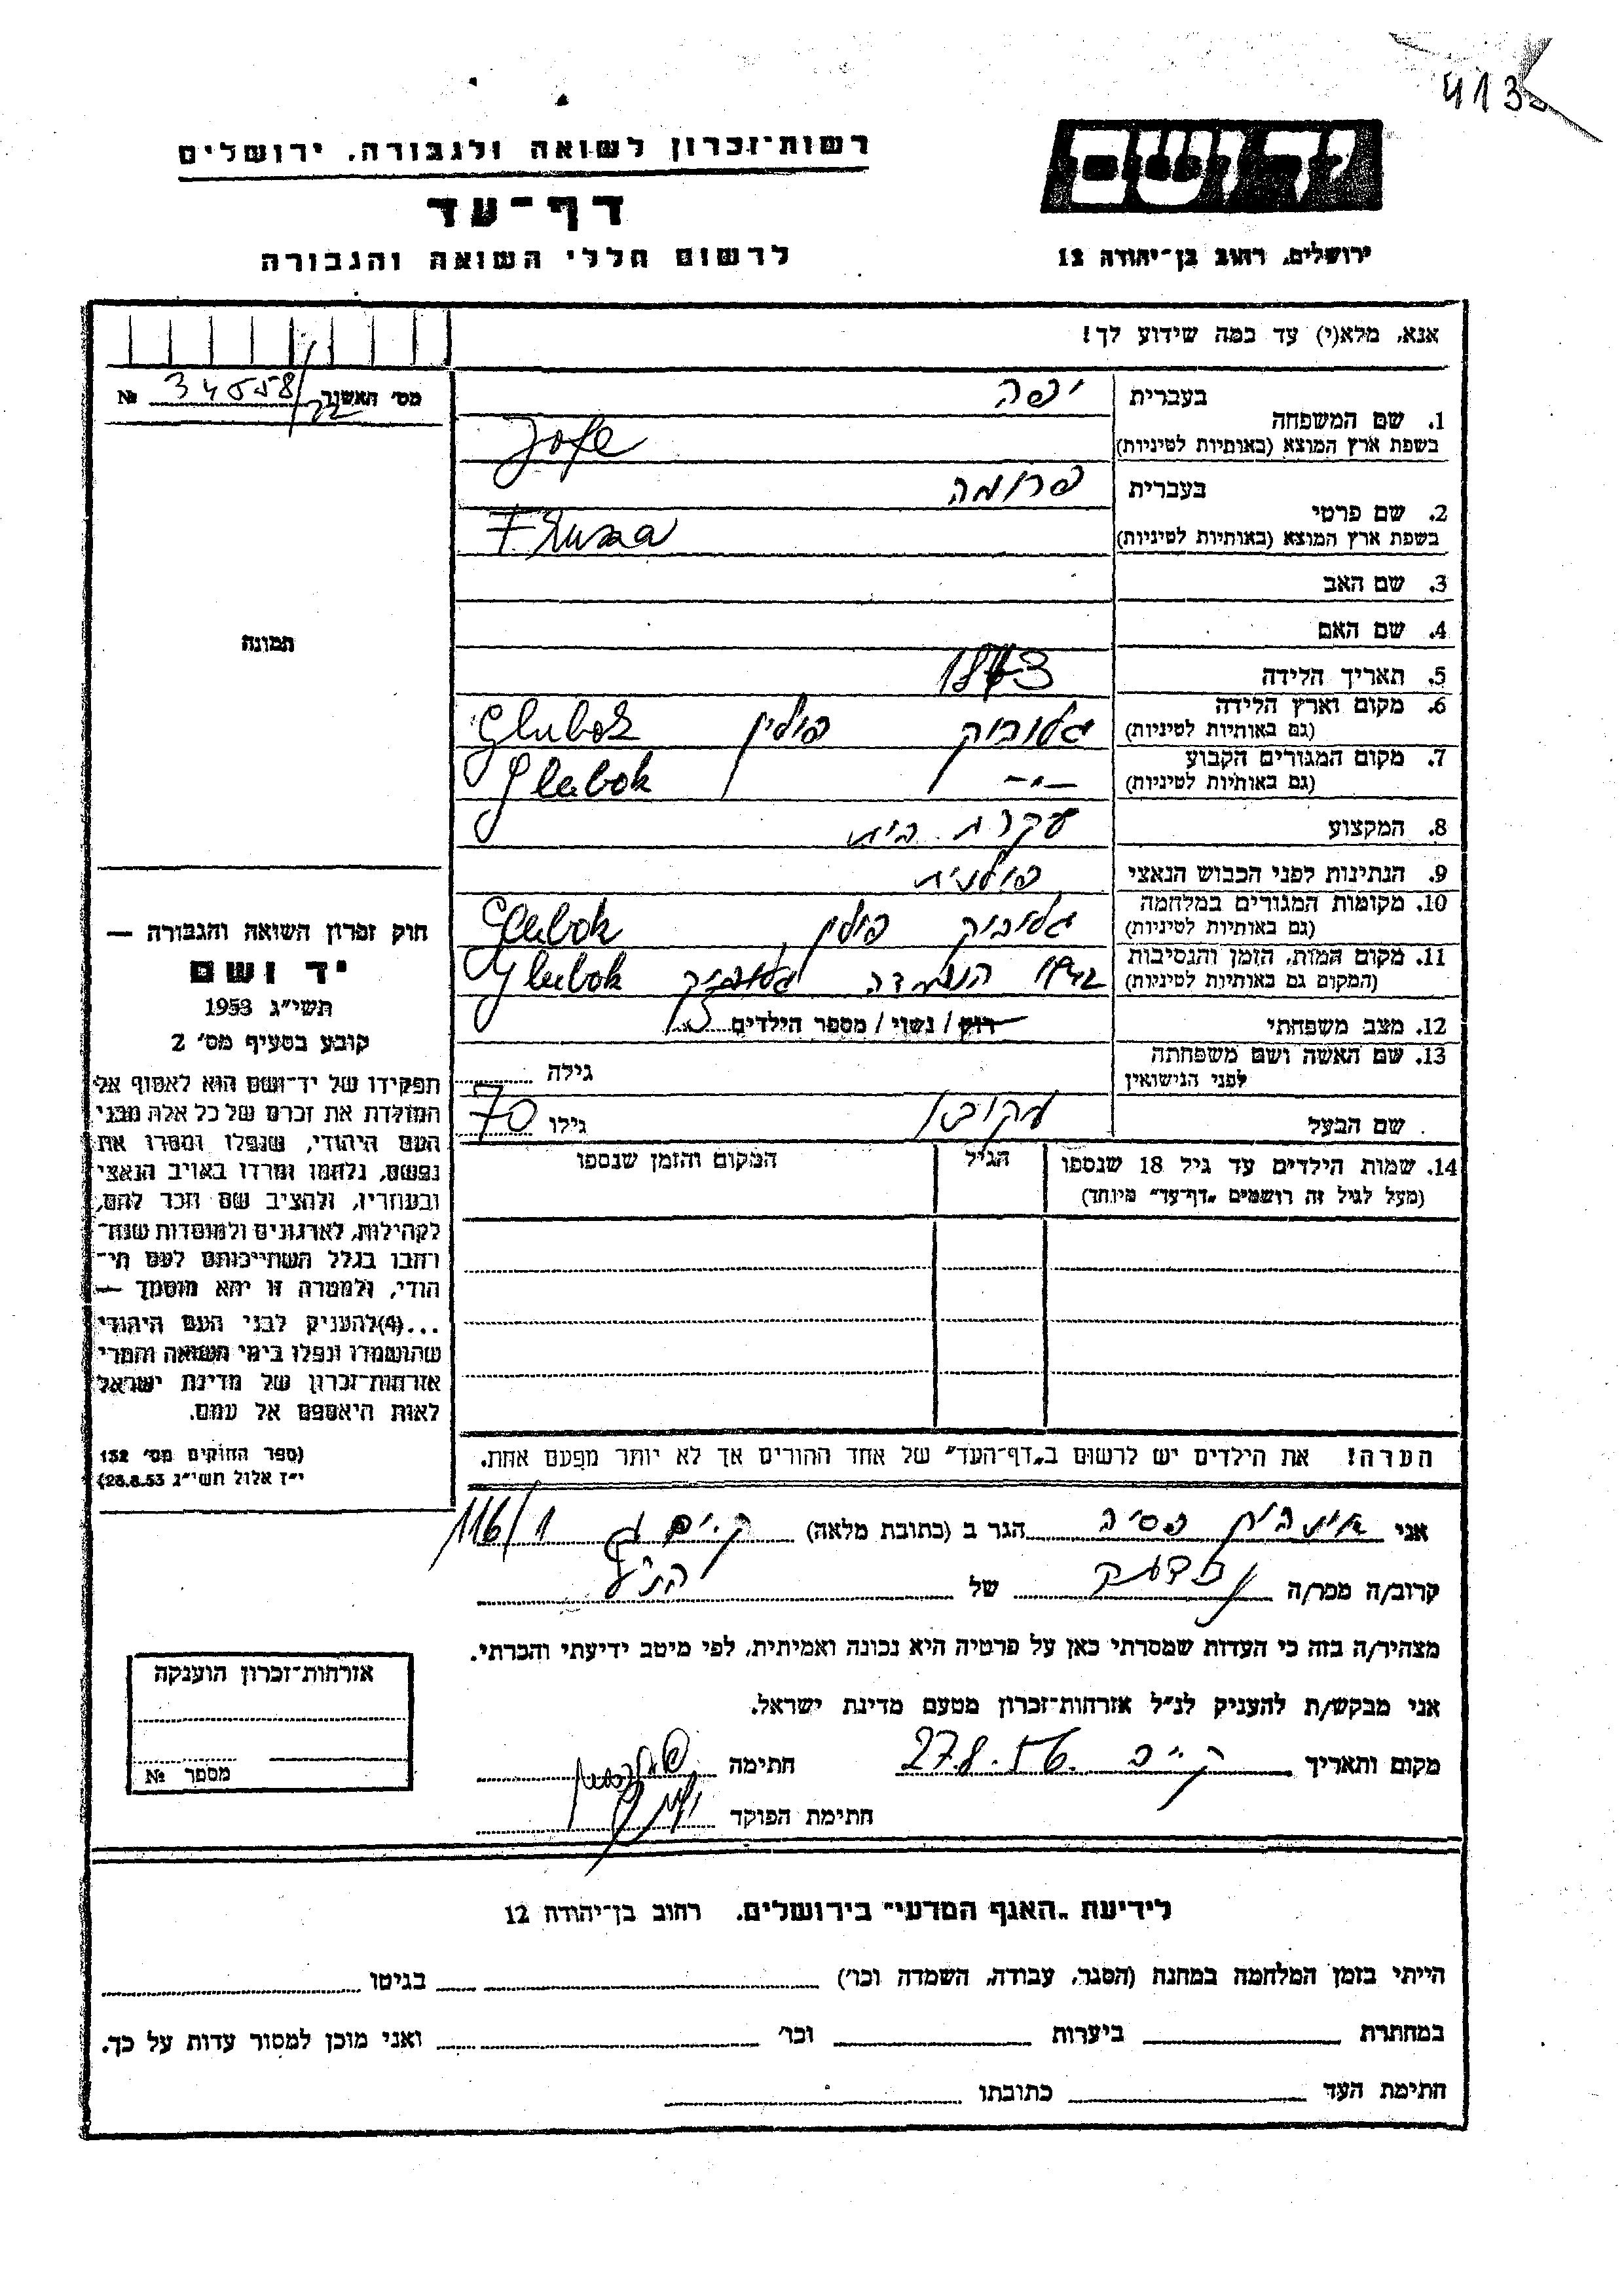 413
רשות־זכרון לשואה ולגבורה, ירושלים
דף־עד
לרשום חללי השואה והגבורה
יד ושם
ירושלים, רחוב בן־יהודה 12
אנא, מלא(י) עד כמה שידוע לך!
מס׳ האשנב 34558/22 №
תמונה
1. שם המשפחה
בעברית יפה
בשפת ארץ המוצא (באותיות לטיניות) Jofe
2. שם פרטי
בעברית פרומה
בשפת ארץ המוצא (באותיות לטיניות)
3. שם האב
4. שם האם
5. תאריך הלידה 1873
6. מקום וארץ הלידה
(גם באותיות לטיניות) גלובוק פולין Glubok
7. מקום המגורים הקבוע
(גם באותיות לטיניות) —״— Glubok
8. המקצוע עקרת בית
9. הנתינות לפני הכבוש הנאצי פולנית
10. מקומות המגורים במלחמה
(גם באותיות לטיניות) גלובוק פולין Glubok
11. מקום המות, הזמן והנסיבות
(המקום גם באותיות לטיניות) 1942 הושמדה גלובוק Glubok
12. מצב משפחתי רוק / נשוי / מספר הילדים 3
13. שם האשה ושם משפחתה
לפני הנישואין גילה
שם הבעל יעקב גילו 70
14. שמות הילדים עד גיל 18 שנספו
(מעל לגיל זה רושמים „דף־עד״ מיוחד)
הגיל
המקום והזמן שנספו
הערה! את הילדים יש לרשום ב„דף־העד״ של אחד ההורים אך לא יותר מפעם אחת.
חוק זכרון השואה והגבורה —
יד ושם
תשי״ג 1953
קובע בסעיף מס׳ 2
תפקידו של יד־ושם הוא לאסוף אל
המולדת את זכרם של כל אלה מבני
העם היהודי, שנפלו ומסרו את
נפשם, נלחמו ומרדו באויב הנאצי
ובעוזריו, ולהציב שם וזכר להם,
לקהילות, לארגונים ולמוסדות שנח־
רבו בגלל השתייכותם לעם הי־
הודי, ולמטרה זו יהא מוסמך —
...(4)להעניק לבני העם היהודי
שהושמדו ונפלו בימי השואה והמרי
אזרחות־זכרון של מדינת ישראל
לאות היאספם אל עמם.
(ספר החוקים מס׳ 132
י״ז אלול תשי״ג 28.8.53)
אני פסיה הגר ב (כתובת מלאה) ק. ים ג 116/1
קרוב/ה מכר/ה של הנ״ל
מצהיר/ה בזה כי העדות שמסרתי כאן על פרטיה היא נכונה ואמיתית, לפי מיטב ידיעתי והכרתי.
אני מבקש/ת להעניק לנ״ל אזרחות־זכרון מטעם מדינת ישראל.
מקום ותאריך 27.8.56 חתימה
חתימת הפוקד
אזרחות־זכרון הוענקה
מספר №
לידיעת „האגף המדעי״ בירושלים, רחוב בן־יהודה 12
הייתי בזמן המלחמה במחנה (הסגר, עבודה, השמדה וכו׳) בגיטו
במחתרת ביערות וכו׳ ואני מוכן למסור עדות על כך.
חתימת העד כתובתו